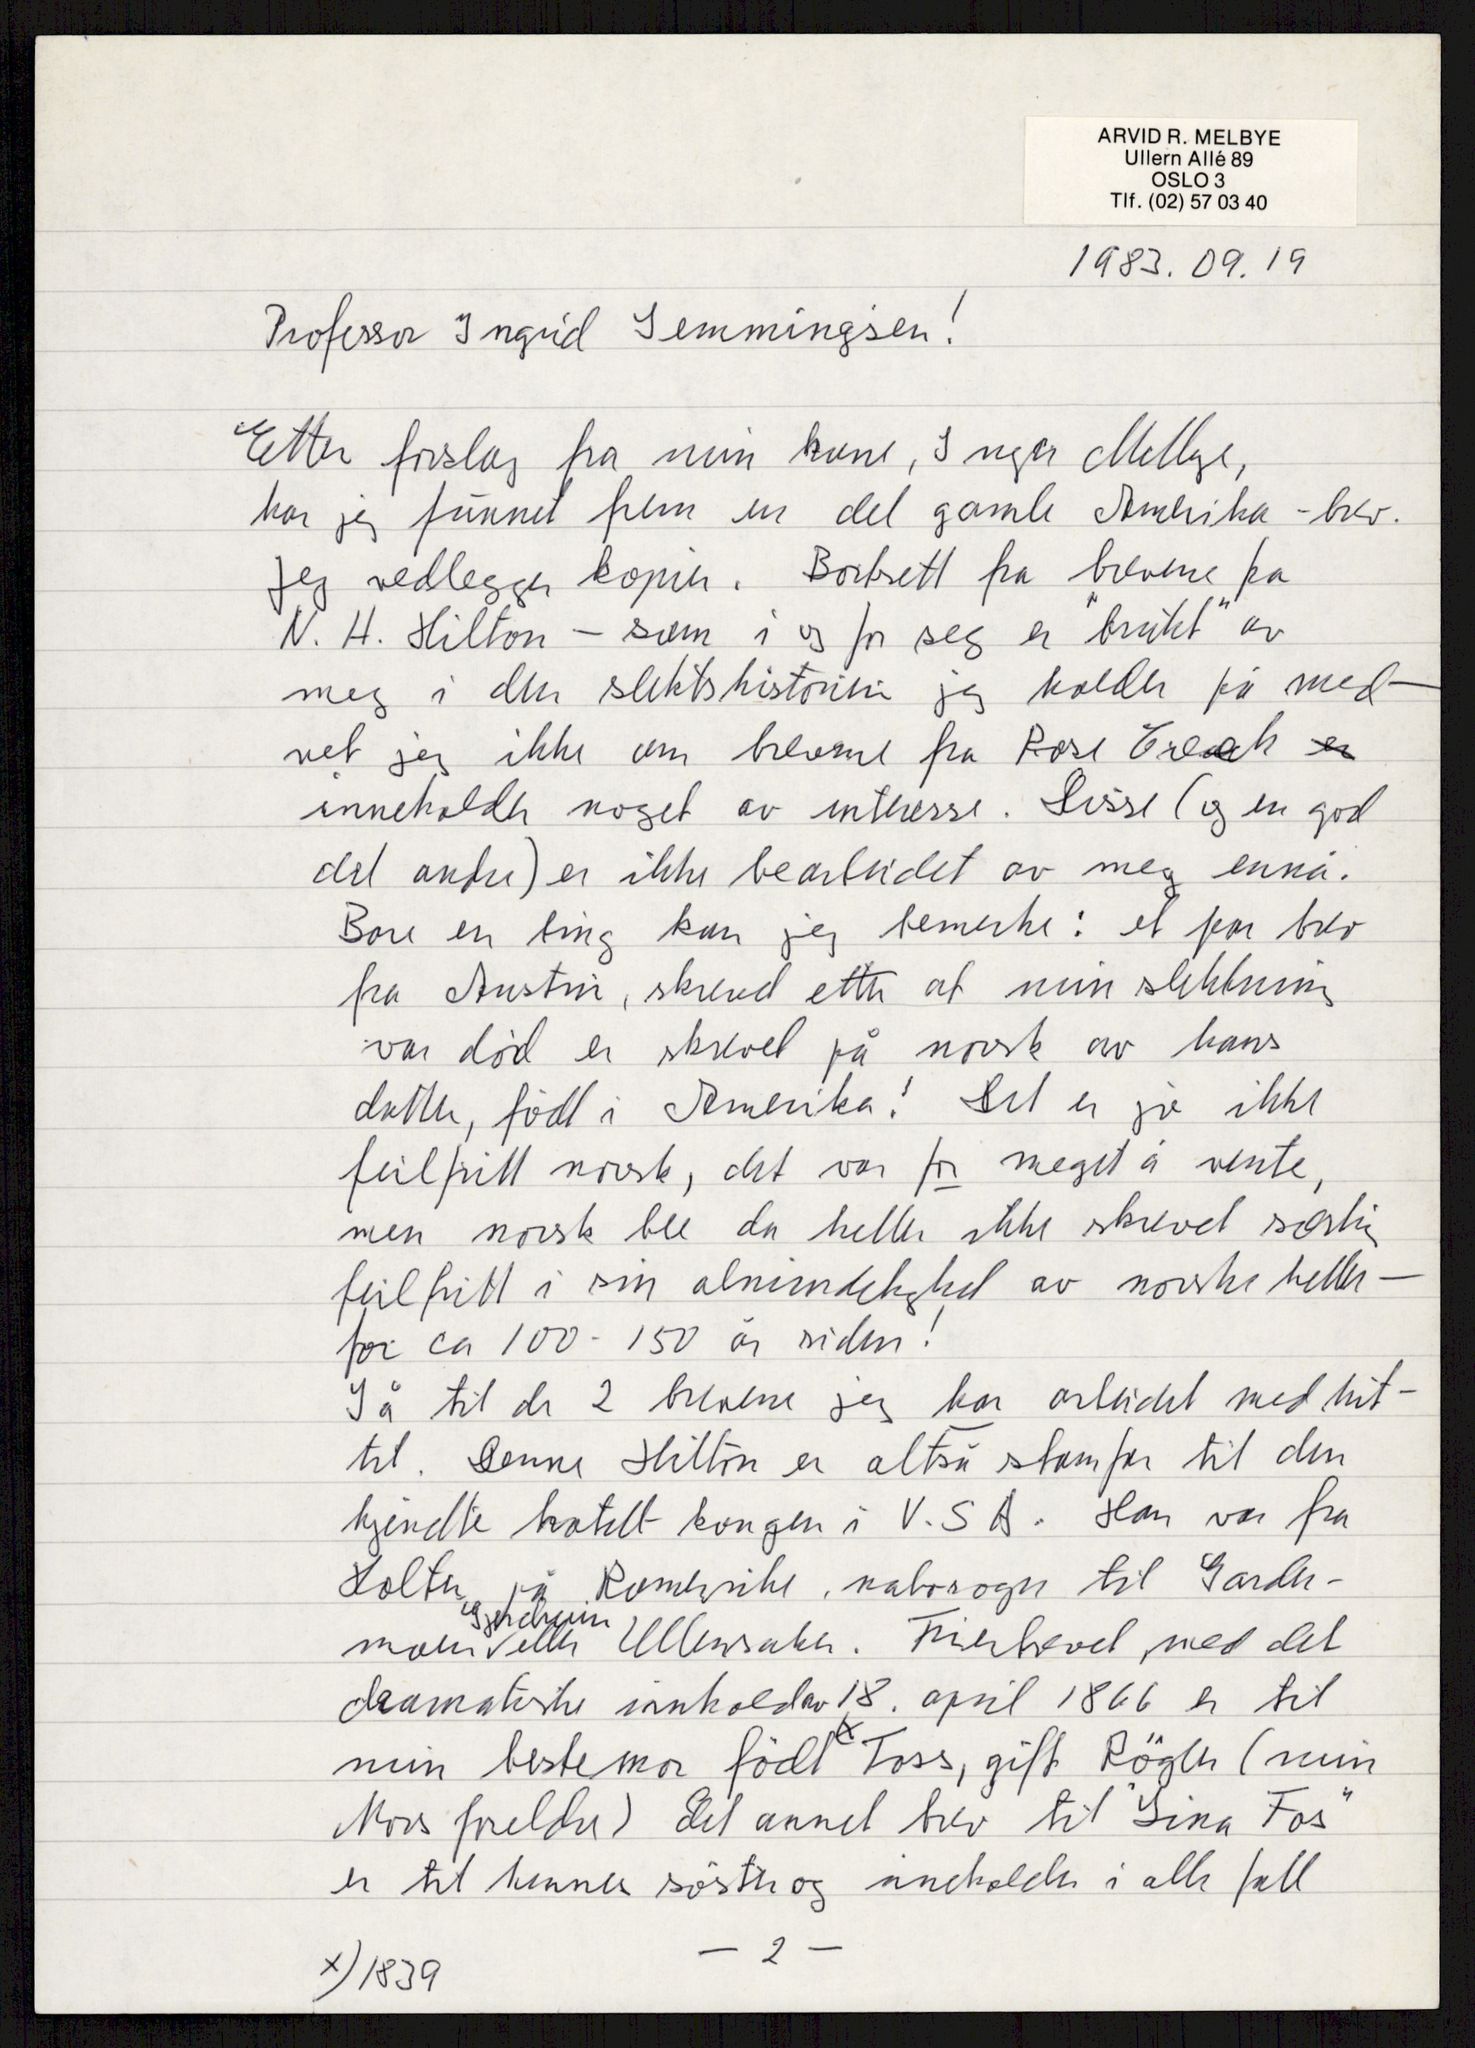 ARVID R. MELBYE
Ullern Allé 89
OSLO 3
Tlf. (02) 57 03 40
1983.09.19
Professor Ingrid Semmingsen!
Etter forslag fra min kone, Inger Melbye,
har jeg funnet frem en del gamle Amerika-brev.
Jeg vedlegger kopier. Bortsett fra brevene fra
N. H. Hilton – som i og for seg er "brukt" av
meg i den slektshistorien jeg holder på med –
vet jeg ikke om brevene fra Rose Creek
inneholder noget av interesse. Disse (og en god
del andre) er ikke bearbeidet av meg ennå.
Bare en ting kan jeg bemerke: et par brev
fra Austin, skrevet etter at min slektning
var død er skrevet på norsk av hans
datter, født i Amerika! Det er jo ikke
feilfritt norsk, det var for meget å vente,
men norsk ble da heller ikke skrevet særlig
feilfritt i sin alminnelighet av norske heller –
for ca 100-150 år siden!
Så til de 2 brevene jeg har arbeidet med hit-
til. Denne Hilton er altså stamfar til den
kjendte hotell-kongen i U.S.A. Han var fra
Holter på Romerike, nabosogn til Garder-
moen Gjerdrum eller Ullensaker. Frierbrevet, med det
dramatiske innhold av 18. april 1866 er til
min bestemor født x Foss, gift Rögler (min
Mors foreldre) Det annet brev til "Lina Fos"
er til hennes søster og inneholder i alle fall
– 2 –
x) 1839